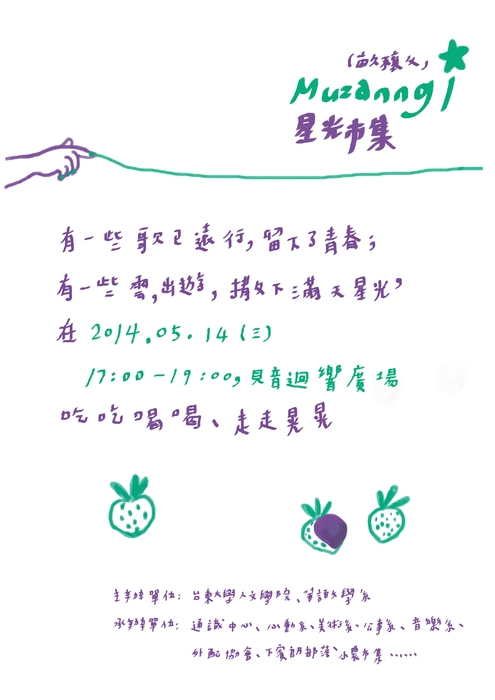 (畝穰ㄍ)
Muzanngi
星光市集
有一些歌已遠行,留下了青春;
有一些雲,出遊,撒下滿天星光,
在 2014.05.14(三)
17:00-19:00,見音迴響廣場
吃吃喝喝、走走晃晃
主辦單位: 台東大學人文學院、華語文學系
承辦單位: 通識中心、心動系、美術系、公事系、音樂系、
外配協會、下賓朗部落、小農市集......